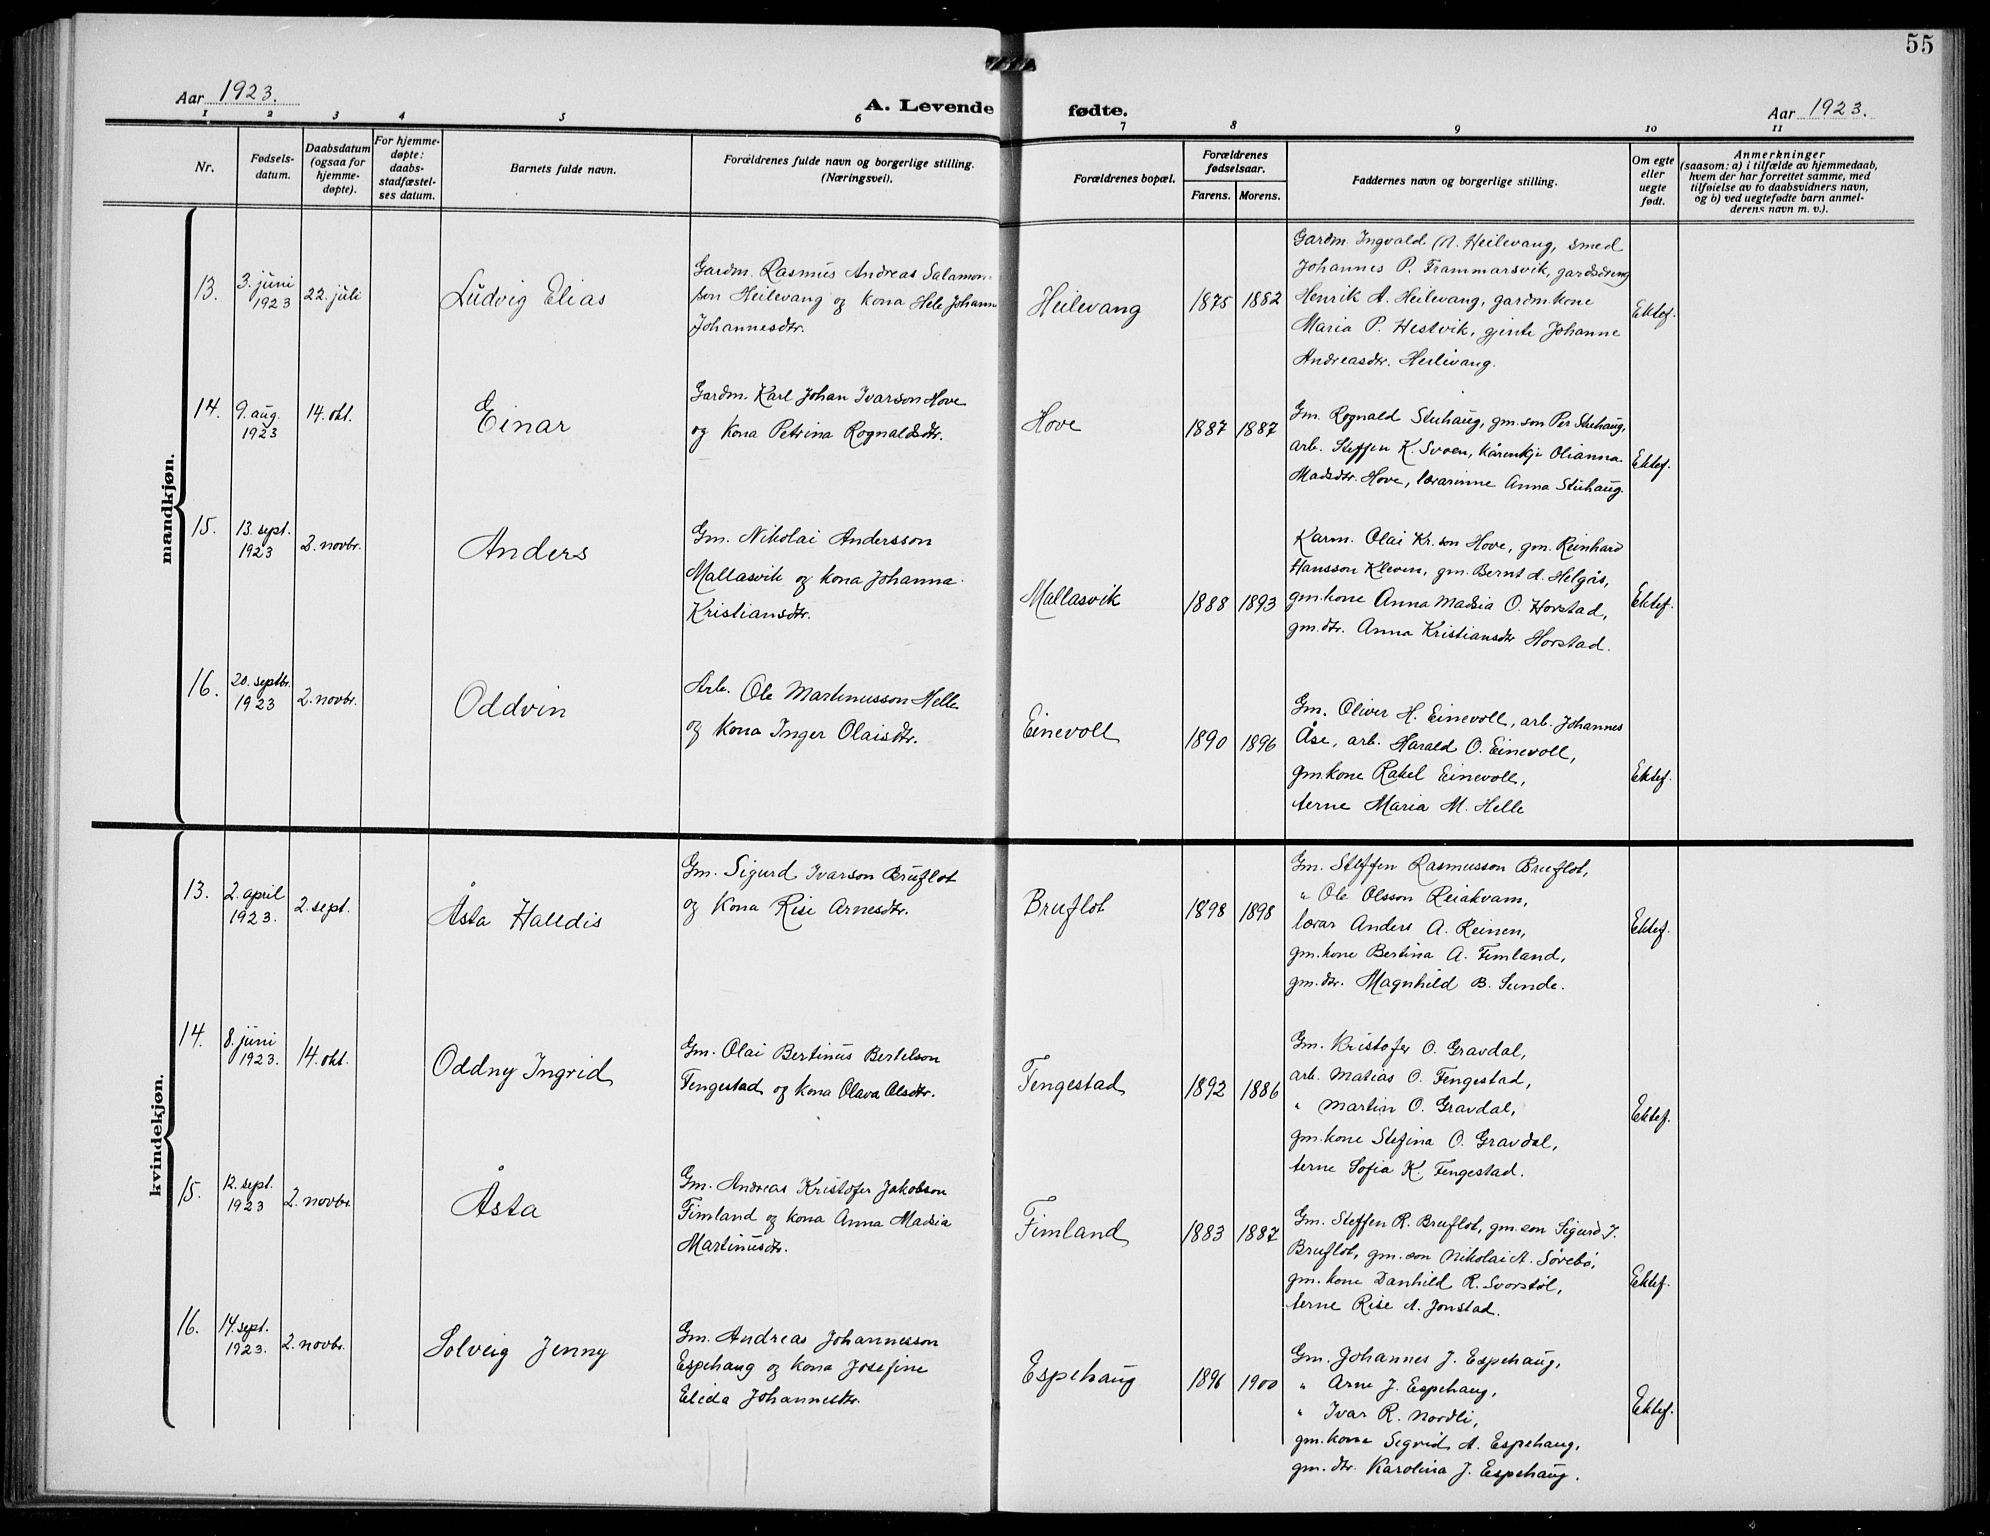 55
Aar 1923.
A. Levende fødte.
Aar 1923.
1 2 3 4 5 6 7 8 9 10 11
Nr.
Fødsels-
datum.
Daabsdatum
(ogsaa for
hjemme-
døpte).
For hjemme-
døpte:
daabs-
stadfæstel-
ses datum.
Barnets fulde navn.
Forældrenes fulde navn og borgerlige stilling.
(Næringsvei).
Forældrenes bopæl.
Forældrenes
fødselsaar.
Farens. Morens.
Faddernes navn og borgerlige stilling.
Om egte
eller
uegte
født.
Anmerkninger
(saasom: a) i tilfælde av hjemmedaab,
hvem der har forrettet samme, med
tilføielse av to daabsvidners navn,
og b) ved uegtefødte barn anmel-
derens navn m. v.).
mandkjøn.
13.
3. juni
1923
22. juli
Ludvig Elias
Gardm. Rasmus Andreas Salamon-
son Heilevang og kona Hele Johanne
Johannesdtr.
Heilevang
1875 1882
Gardm. Ingvald A. Heilevang, smed
Johannes P. Frammarsvik, gardsdreng
Henrik A. Heilevang, gardmkone
Maria P. Hestvik, gjente Johanne
Andreasdtr. Heilevang.
Ektef.
14.
9. aug.
1923
14. okt.
Einar
Gardm. Karl Johan Ivarson Hove
og kona Petrina Rognaldsdtr.
Hove
1887 1887
Gm. Rognald Stuhaug, gm. son Per Stuhaug,
arb. Steffen K. Svoen, kårenkje Olianna
Madsdtr. Hove, lærarinne Anna Stuhaug.
Ektef.
15.
13. sept.
1923
2. novbr.
Anders
Gm. Nikolai Andersson
Mallasvik og kona Johanna
Kristiansdtr.
Mallasvik
1888 1893
Karm. Olai Kr. son Hove, gm. Reinhard
Hansson Kleven, gm. Bernt A. Helgås,
gm. kone Anna Madsia O. Horstad,
gm. dtr. Anna Kristiansdtr Horstad.
Ektef.
16.
20. septbr.
1923
2. novbr.
Oddvin
Arb. Ole Martinusson Helle
og kona Inger Olaisdtr.
Einevoll
1890 1896
Gm. Oliver H. Einevoll, arb. Johannes
Åse, arb. Harald O. Einevoll,
gm. kone Rakel Einevoll,
terne Maria M. Helle
Ektef.
kvindekjøn.
13.
2. april
1923.
2. sept.
Åsta Halldis
Gm. Sigurd Ivarson Bruflot
og kona Rise Arnesdtr.
Bruflot
1898 1898
Gm. Steffen Rasmusson Bruflot,
" Ole Olsson Leiakvam,
lærar Anders A. Reinen,
gm. kone Bertina A. Fimland,
gm. dtr. Magnhild B. Sunde.
Ektef.
14.
8. juni
1923.
14. okt.
Oddny Ingrid
Gm. Olai Bertinus Bertelson
Tengestad og kona Olava Olsdtr.
Tengestad
1892 1886
Gm. Kristofer O. Gravdal,
arb. Matias O. Tengestad,
" Martin O. Gravdal,
gm. kone Stefina O. Gravdal,
terne Sofia K. Tengestad.
Ektef.
15.
12. sept.
1923
2. novbr.
Åsta
Gm. Andreas Kristofer Jakobson
Fimland og kona Anna Madsia
Martinusdtr.
Fimland
1883 1887
Gm. Steffen R. Bruflot, gm. son Sigurd I.
Bruflot, gm. son Nikolai A. Sørebø,
gm. kone Danhild R. Svorstøl,
terne Rise A. Jonstad.
Ektef.
16.
14. sept.
1923.
2. novbr.
Solveig Jenny
Gm. Andreas Johannesson
Espehaug og kona Josefine
Elida Johannesdtr.
Espehaug
1896 1900
Gm. Johannes J. Espehaug,
" Arne J. Espehaug,
" Ivar R. Nordli,
gm. kone Sigrid A. Espehaug,
gm. dtr. Karolina J. Espehaug.
Ektef.